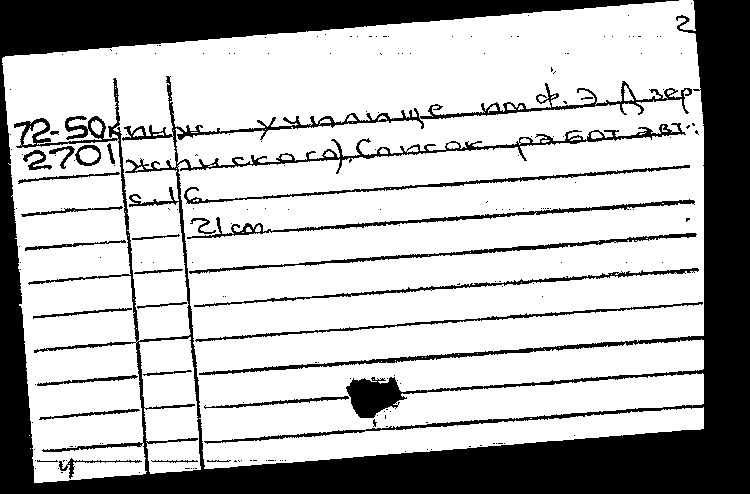 2
72-50к инж. училище им Ф. Э. Дзер-
2701 жинского). Список работ авт.:
с. 16
21 см
4